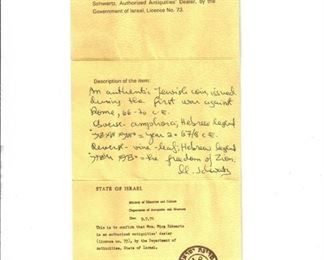 Schwartz, Authorized Antiquities' Dealer, by the
Government of Israel, Licence No. 73.
Description of the item:
An authentic Jewish coin issued
during the first war against
Rome, 66-70 C.E.
Obverse - amphora; Hebrew legend
= year 2 = 67/8 C.E.
Reverse - vine-leaf; Hebrew legend
= the freedom of Zion.
STATE OF ISRAEL
Ministry of Education and Culture
Department of Antiquities and Museums
This is to confirm that Mrs. Schwartz
is an authorized antiquities' dealer
(licence no. 73), by the Department of
Antiquities, State of Israel.